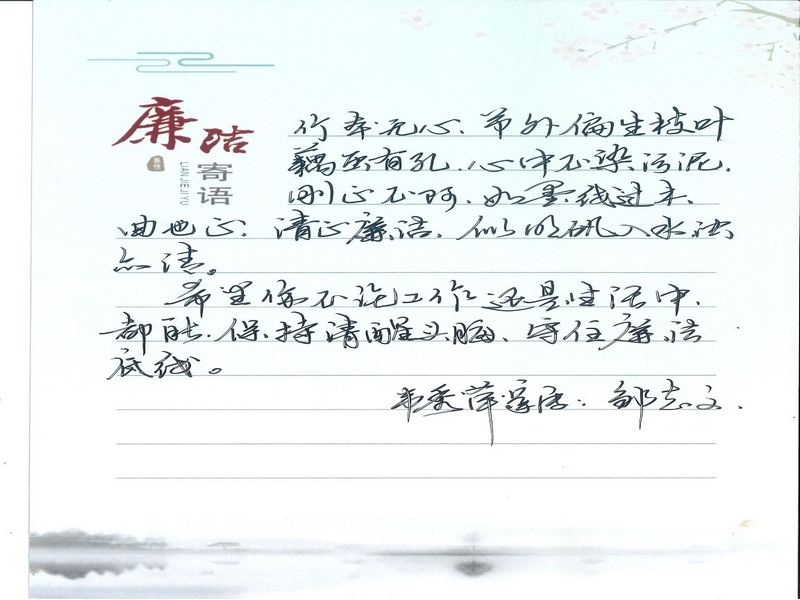 廉洁
寄语
LIAN JIE JI YU
竹本无心、节外偏生枝叶
藕虽有孔、心中不染污泥.
刚正不阿、如墨线过木、
曲也正. 清正廉洁、似明矾入水浊
亦清。
希望你不论工作还是生活中、
都能保持清醒头脑、守住廉洁
底线。
秀萍家属：邹志文.